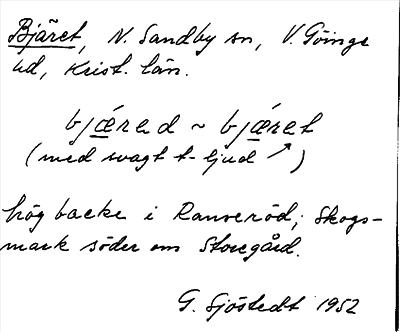 Bjäret, N. Sandby sn, V. Göinge
hd, Krist. län.
bjǽrad ~ bjǽret
(med svagt t-ljud ↗)
hög backe i Ranseröd; skogs-
mark söder om Storegård.
G. Sjöstedt 1952